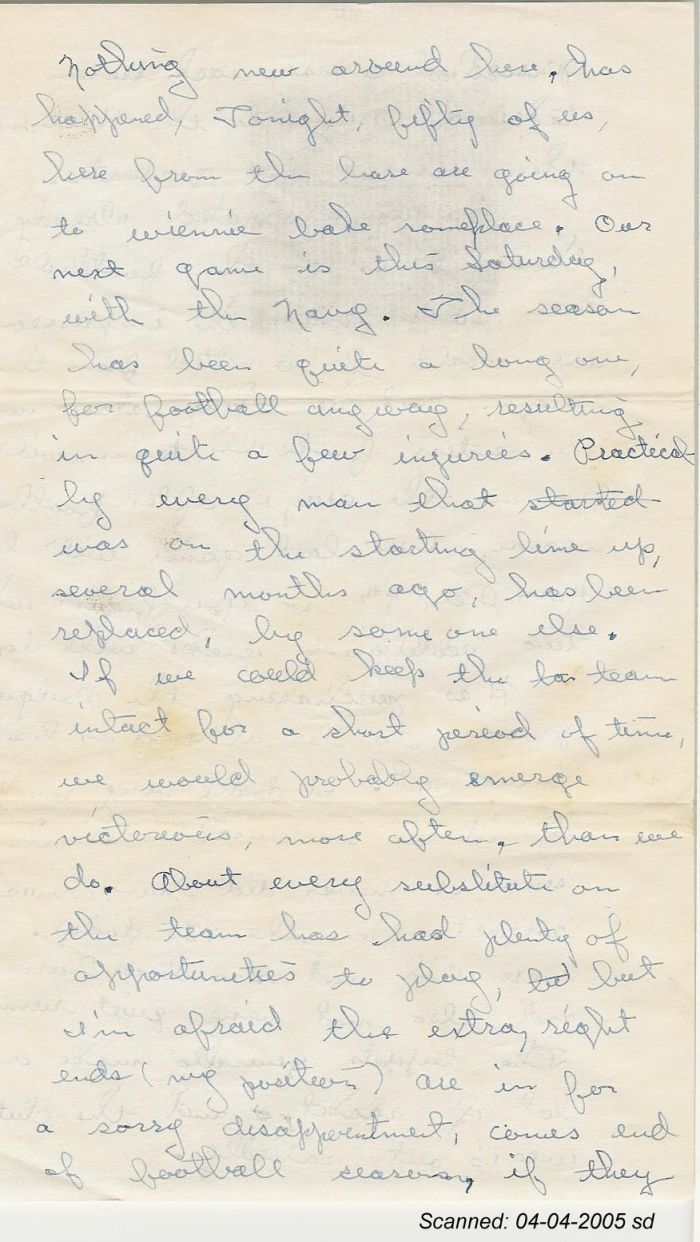 Nothing new around here, has
happened, Tonight, fifty of us,
here from the base are going on
to wiennie bake someplace. Our
next game is this Saturday,
with the Navy. The season
has been quite a long one,
for football anyway, resulting
in quite a few injuries. Practical-
ly every man that started
was on the starting line up,
several months ago, has been
replaced, by some one else.
If we could keep the team
intact for a short period of time,
we would probably emerge
victorious, more often, than we
do. About every substitute on
the team has had plenty of
opportunities to play, but but
I'm afraid the extra, right
ends (my position) are in for
a sorry disappointment, comes end
of football season, if they
Scanned: 04-04-2005 sd